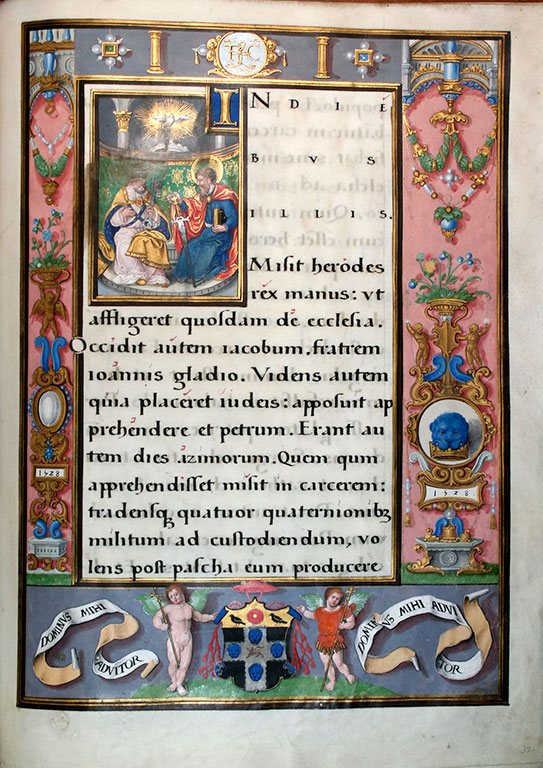 THC
IN DIE
BVS
ILLIS.
Misit herodes
rex manus: vt
affligeret quosdam de ecclesia.
Occidit autem iacobum, fratrem
ioannis gladio. Videns autem
quia placeret iudeis: apposuit ap
prehendere et petrum. Erant au
tem dies azimorum. Quem qum
apprehendisset misit in carcerem:
tradensq; quatuor quaternionibꝫ
militum ad custodiendum, vo
lens post pascha eum producere
1528
1528
DOMINVS MIHI
ADVITOR
DOMINVS MIHI ADVI
TOR